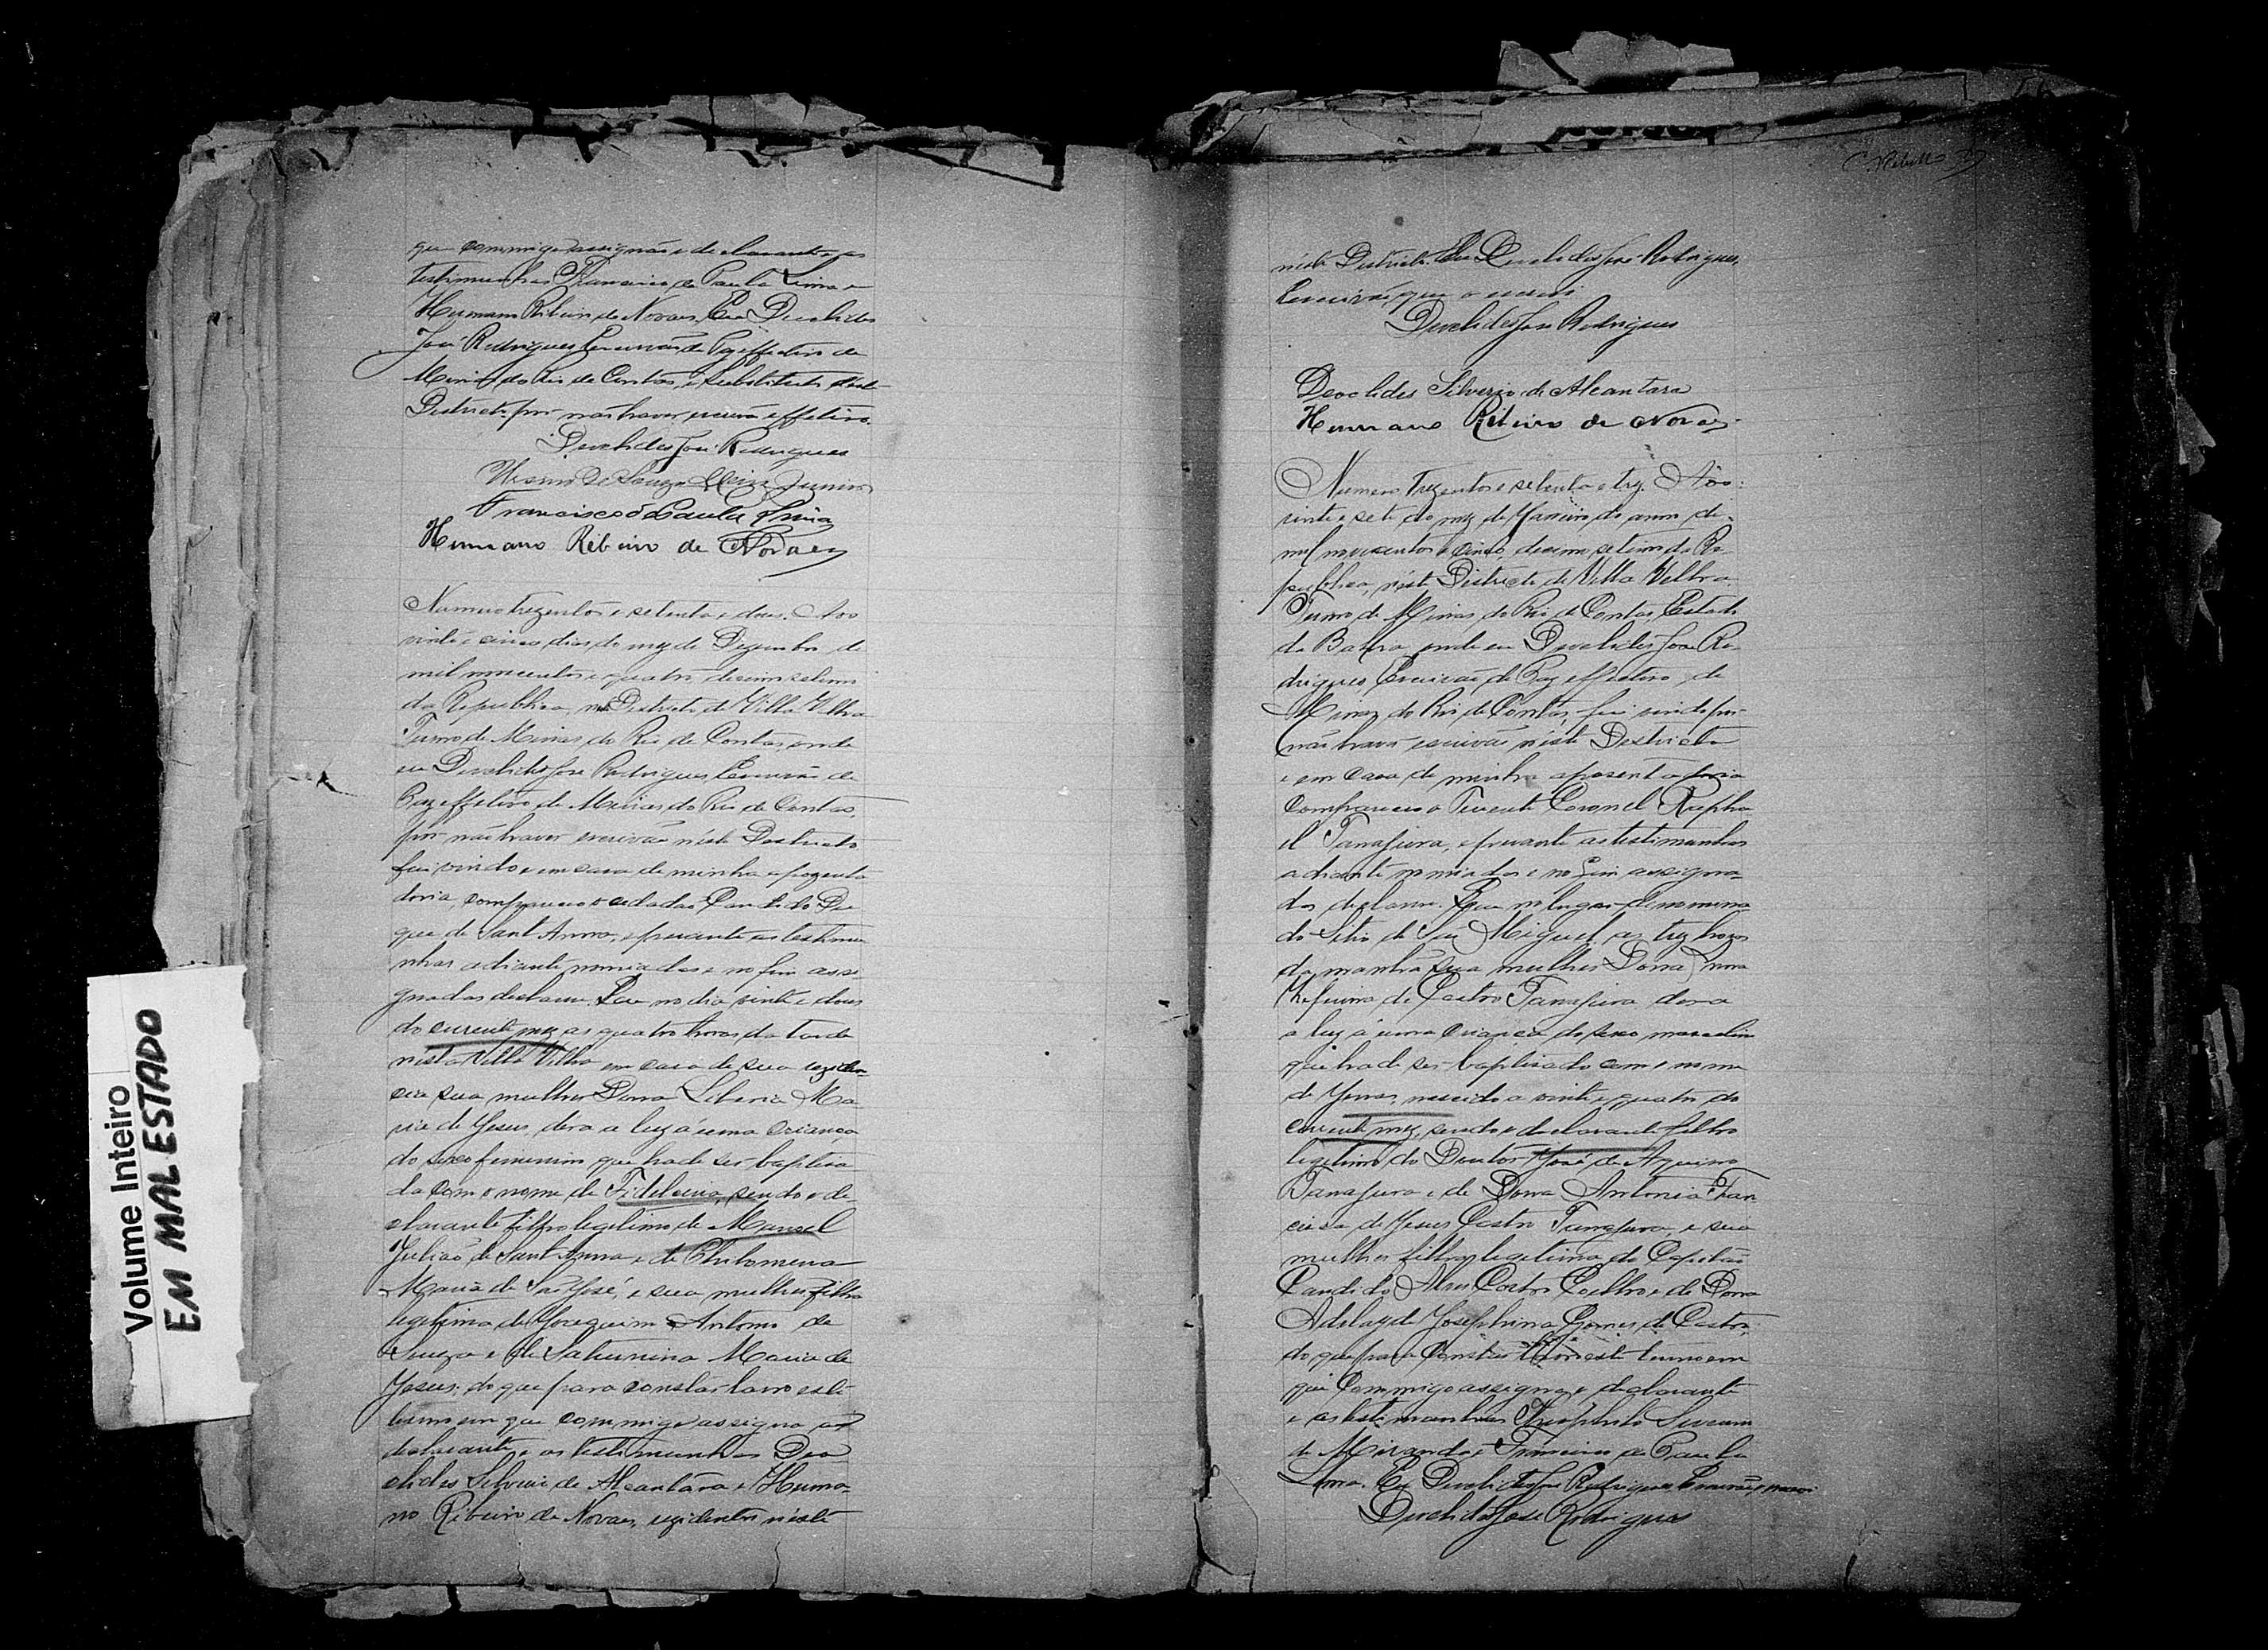 que commigo assignão o declarante e as
testimunhas Francisco de Paula Lima e
Hermano Ribeiro de Novaes. Eu Deoclides
José Rodrigues Escrivão de Paz effectivo de
Minas do Rio de Contas, e substituto deste
Districto por não haver escrivão effectivo.
Deoclides José Rodrigues
de Souza Meira Junior
Francisco de Paula Lima
Hermano Ribeiro de Novaes
Numero trezentos e setenta e dous. Aos
vinte e cinco dias do mez de Dezembro de
mil novecentos e quatro, decimo setimo
da Republica, neste Districto de Villa Velha
Termo de Minas do Rio de Contas onde
eu Deoclides José Rodrigues Escrivão de
Paz effetivo de Minas do Rio de Contas,
por não haver escrivão néste Destricto
fui vindo e em casa de minha apozenta
doria, compareceo o cidadão Candido Du
que de Sant'Anna, e perante as testimu
nhas adiante nomiadas e no fim assi
gnadas declarou. Que no dia vinte e dous
do corrente mez as quatro horas da tarde
nésta Villa Velha em casa de sua reziden
cia sua mulher Dona Liberia Ma
ria de Yesus, dera a luz á uma criança
do sexo femenino que hade ser baptisa
da com o nome de Fidelcina, sendo o de
clarante filho legitimo de Manoel
Julião de Sant'Anna e de Philomena
Maria de São José, e sua mulher filha
legitima de Joaquim Antonio de
Souza e de Saturnina Maria de
Yesus; do que para constar lavro este
termo em que commigo assigna o
declarante e as testimunhas Deo
clides Silverio de Alcantara e Herma
no Ribeiro de Novaes, rezidentes néste
C. Rebello
néste Districto. Eu Deoclides José Rodrigues,
Escrivão, que o escrevi
Deoclides José Rodrigues
Deoclides Silverio de Alcantara
Hermano Ribeiro de Novaes
Numero trezentos e setenta e trez. Aos
vinte e sete do mez de Janeiro do anno de
mil novecentos e cinco, decimo setimo da Re
publica, néste Districto de Villa Velha
Termo de Minas do Rio de Contas, Estado
da Bahia, onde eu Deoclides José Ro
drigues, Escrivão de Paz effectivo de
Minas do Rio de Contas, fui vindo por
não haver escrivão néste Destricto
e em casa de minha aposentadoria
compareceo o Tenente Coronel Rapha
el Tanajura, e perante as testimunhas
adiante nomiadas e no fim assigna
das declarou. Que no lugar denomina
do Sitio de São Miguel, as trez horas
da manhã sua mulher Dona
Zeferina de Castro Tanajura dera
a luz á uma criança do sexo masculino
que hade ser baptisado com o nome
de nascido a vinte e quatro do
corrente mez, sendo o declarante filho
legitimo do Doutor José de Aquino
Tanajura e de Dona Antonia Fran
cisca de Yesus Castro Tanajura, e sua
mulher filha legitima do Capitão
Candido Alves Castro Coelho e de Dona
Adelayde Josephina Gomes de Castro,
do que para constar lavro este termo em
que commigo assigna o declarante
e as testimunhas Theophilo
de Miranda e Francisco de Paula
Lima. Eu Deoclides José Rodrigues Escrivão, o escrevi
Deoclides José Rodrigues
Volume Inteiro
EM MAL ESTADO